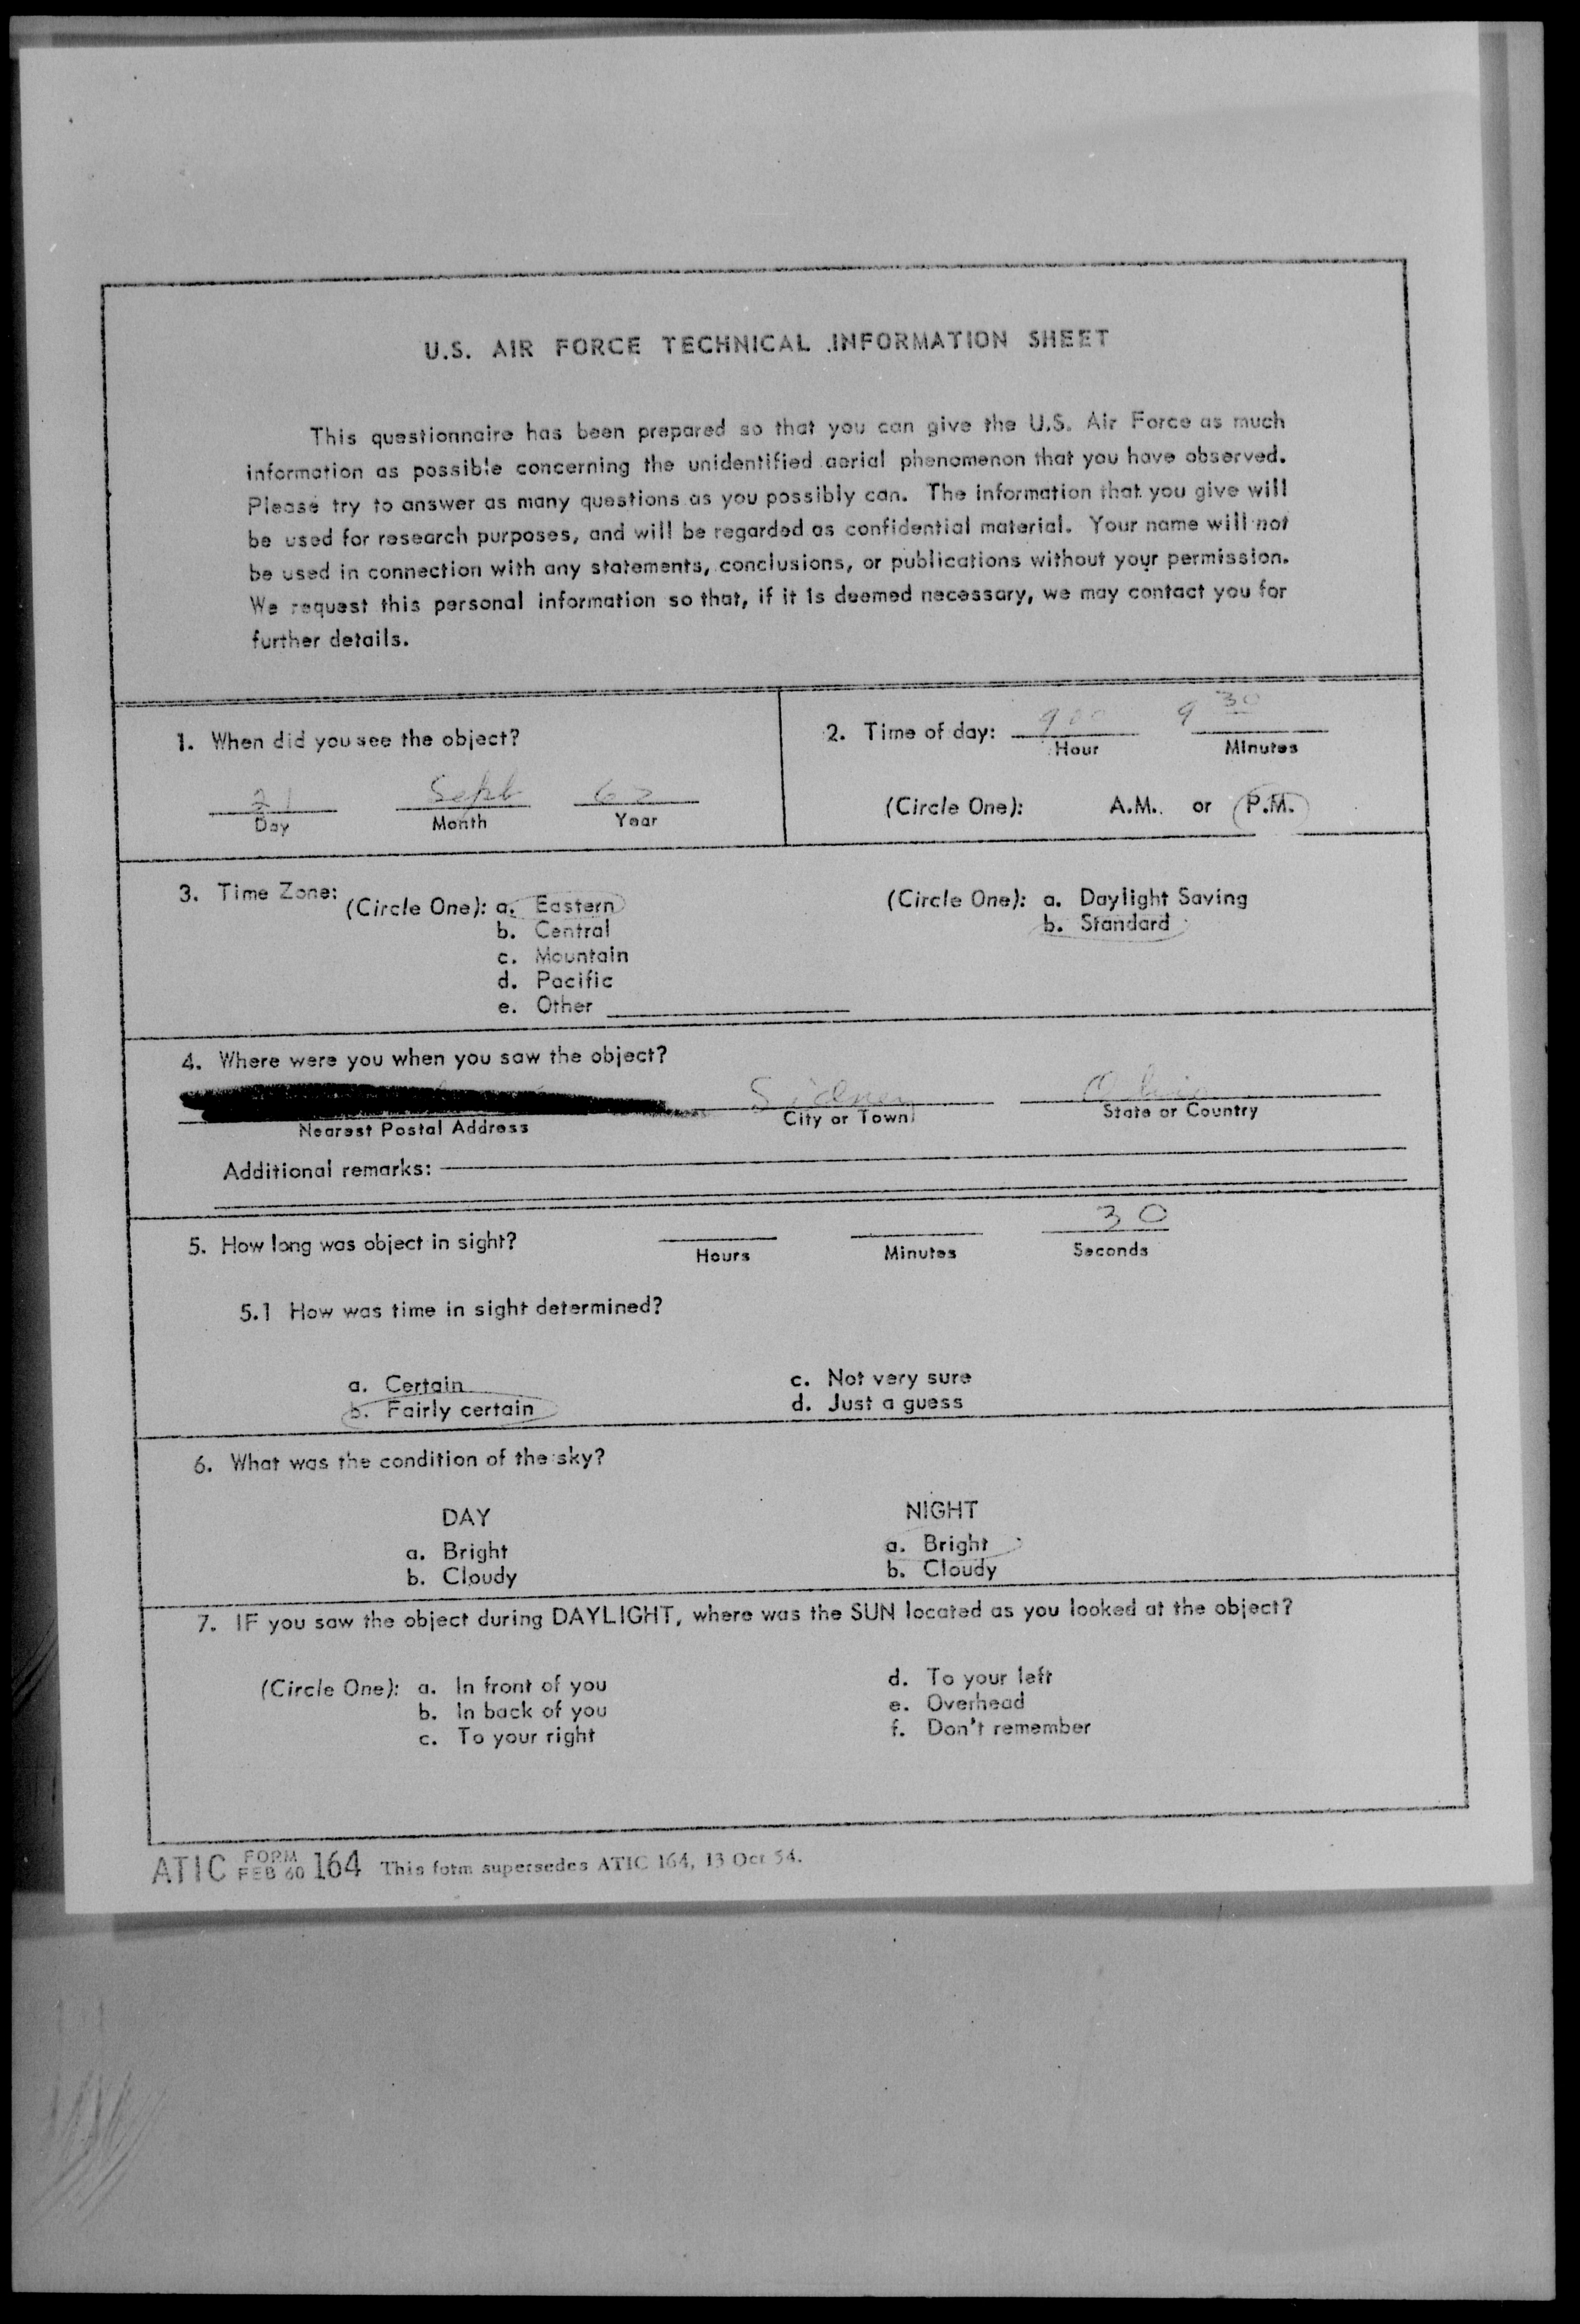 U.S. AIR FORCE TECHNICAL INFORMATION SHEET
This questionnaire has been prepared so that you can give the U.S. Air Force as much
information as possible concerning the unidentified aerial phenomenon that you have observed.
Please try to answer as many questions as you possibly can. The information that you give will
be used for research purposes, and will be regarded as confidential material. Your name will not
be used in connection with any statements, conclusions, or publications without your permission.
We request this personal information so that, if it is deemed necessary, we may contact you for
further details.
1. When did you see the object?
21 Sept 62
Day Month Year
2. Time of day: 9 00 9 30
Hour Minutes
(Circle One): A.M. or P.M.
3. Time Zone:
(Circle One): a. Eastern
b. Central
c. Mountain
d. Pacific
e. Other
(Circle One): a. Daylight Saving
b. Standard
4. Where were you when you saw the object?
Sidney Ohio
Nearest Postal Address City or Town State or Country
Additional remarks:
5. How long was object in sight? 30
Hours Minutes Seconds
5.1 How was time in sight determined?
a. Certain c. Not very sure
b. Fairly certain d. Just a guess
6. What was the condition of the sky?
DAY NIGHT
a. Bright a. Bright
b. Cloudy b. Cloudy
7. IF you saw the object during DAYLIGHT, where was the SUN located as you looked at the object?
(Circle One): a. In front of you d. To your left
b. In back of you e. Overhead
c. To your right f. Don't remember
ATIC FORM FEB 60 164 This form supersedes ATIC 164, 13 Oct 54.